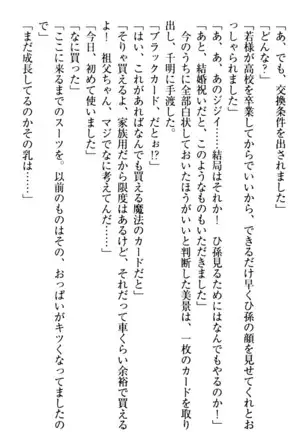 「あ、で、でも、交換条件を出されました」
「どんな？」
「若様が高校を卒業してからでいいから、できるだけ早くひ孫の顔を見せてくれとお
っしゃられました」
「あ、あ、あのジジイ……結局はそれか！　ひ孫見るためにはなんでもやるのか！」
「あと、結婚祝いだと、このようなものもいただきました」
今のうちに全部白状しておいたほうがいいと判断した美景は、一枚のカードを取り
出し、千明に手渡した。
「ブラックカード、だとぉ!?」
「はい、これがあればなんでも買える魔法のカードだと」
「そりゃ買えるよ、家族用だから限度はあるけど、それだって車くらい余裕で買える
よ！　祖父ちゃん、マジでなに考えてんだ……」
「今日、初めて使いました」
「なに買った」
「ここに来るまでのスーツを。以前のものはその、おっぱいがキツくなってましたの
で」
「まだ成長してるのかその乳は……」